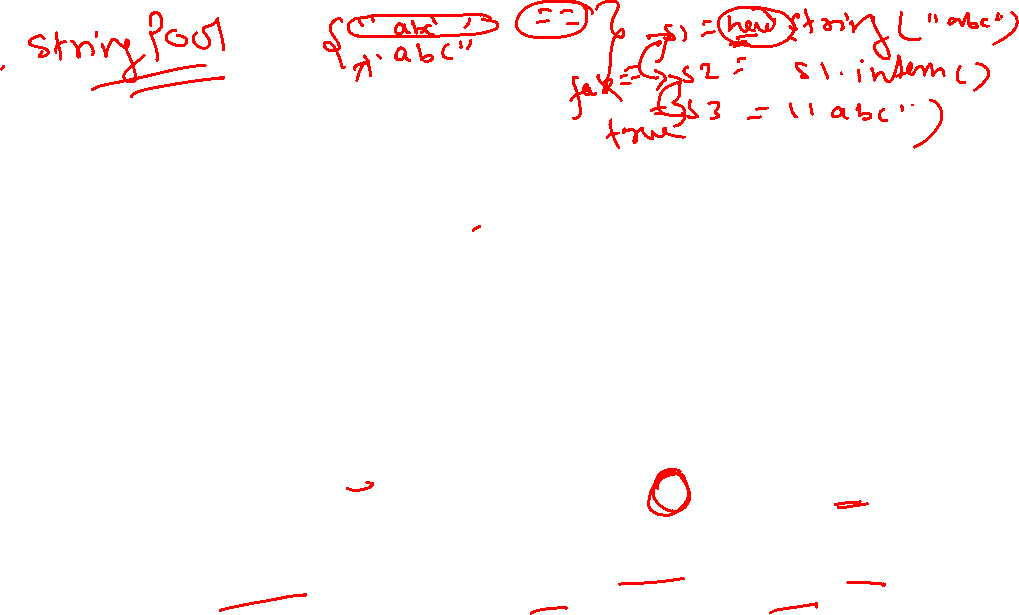 String Pool
"abc" ==
"abc"
s1 = new String("abc")
false s2 = s1.intern()
s3 = "abc")
true